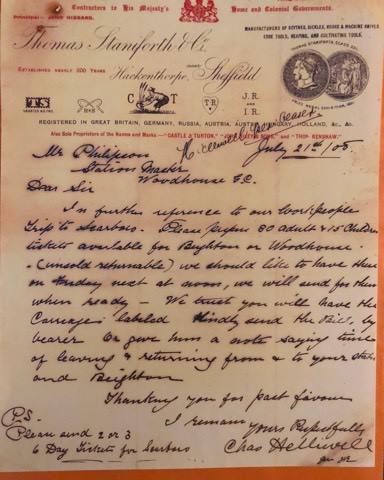 Contractors to His Majesty's Home and Colonial Governments.
Principal— JOHN HIBBARD.
MANUFACTURERS OF SCYTHES, SICKLES, HOOKS & MACHINE KNIVES,
EDGE TOOLS, HEAVING, AND CULTIVATING TOOLS.
Thomas Staniforth & Co.
ESTABLISHED NEARLY 200 YEARS
Hackenthorpe, Sheffield
TS
C T
T·R
J.R
and
I.R.
REGISTERED IN GREAT BRITAIN, GERMANY, RUSSIA, AUSTRIA, HOLLAND, &c., &c.
Also Sole Proprietors of the Names and Marks— "CASTLE & TURTON," and "THOS RENSHAW."
July 21st/05
Mr Philipson
Station Master
Woodhouse
Dear Sir
In further reference to our Workpeople
Trip to Scarboro. Please 80 adult & 15 Children
tickets available for Beighton or Woodhouse
(unsold returnable) we should like to have them
on next at noon, we will send for them
when ready — We trust you will have the
Carriages labeled Kindly send the Bills, by
bearer Or give him a note saying time
of leaving & returning from & to your station
and Beighton
Thanking you for past favours
I remain
Yours Respectfully
Chas Helliwell
P.S.
Please send 2 or 3
6 Day Tickets for Scarboro